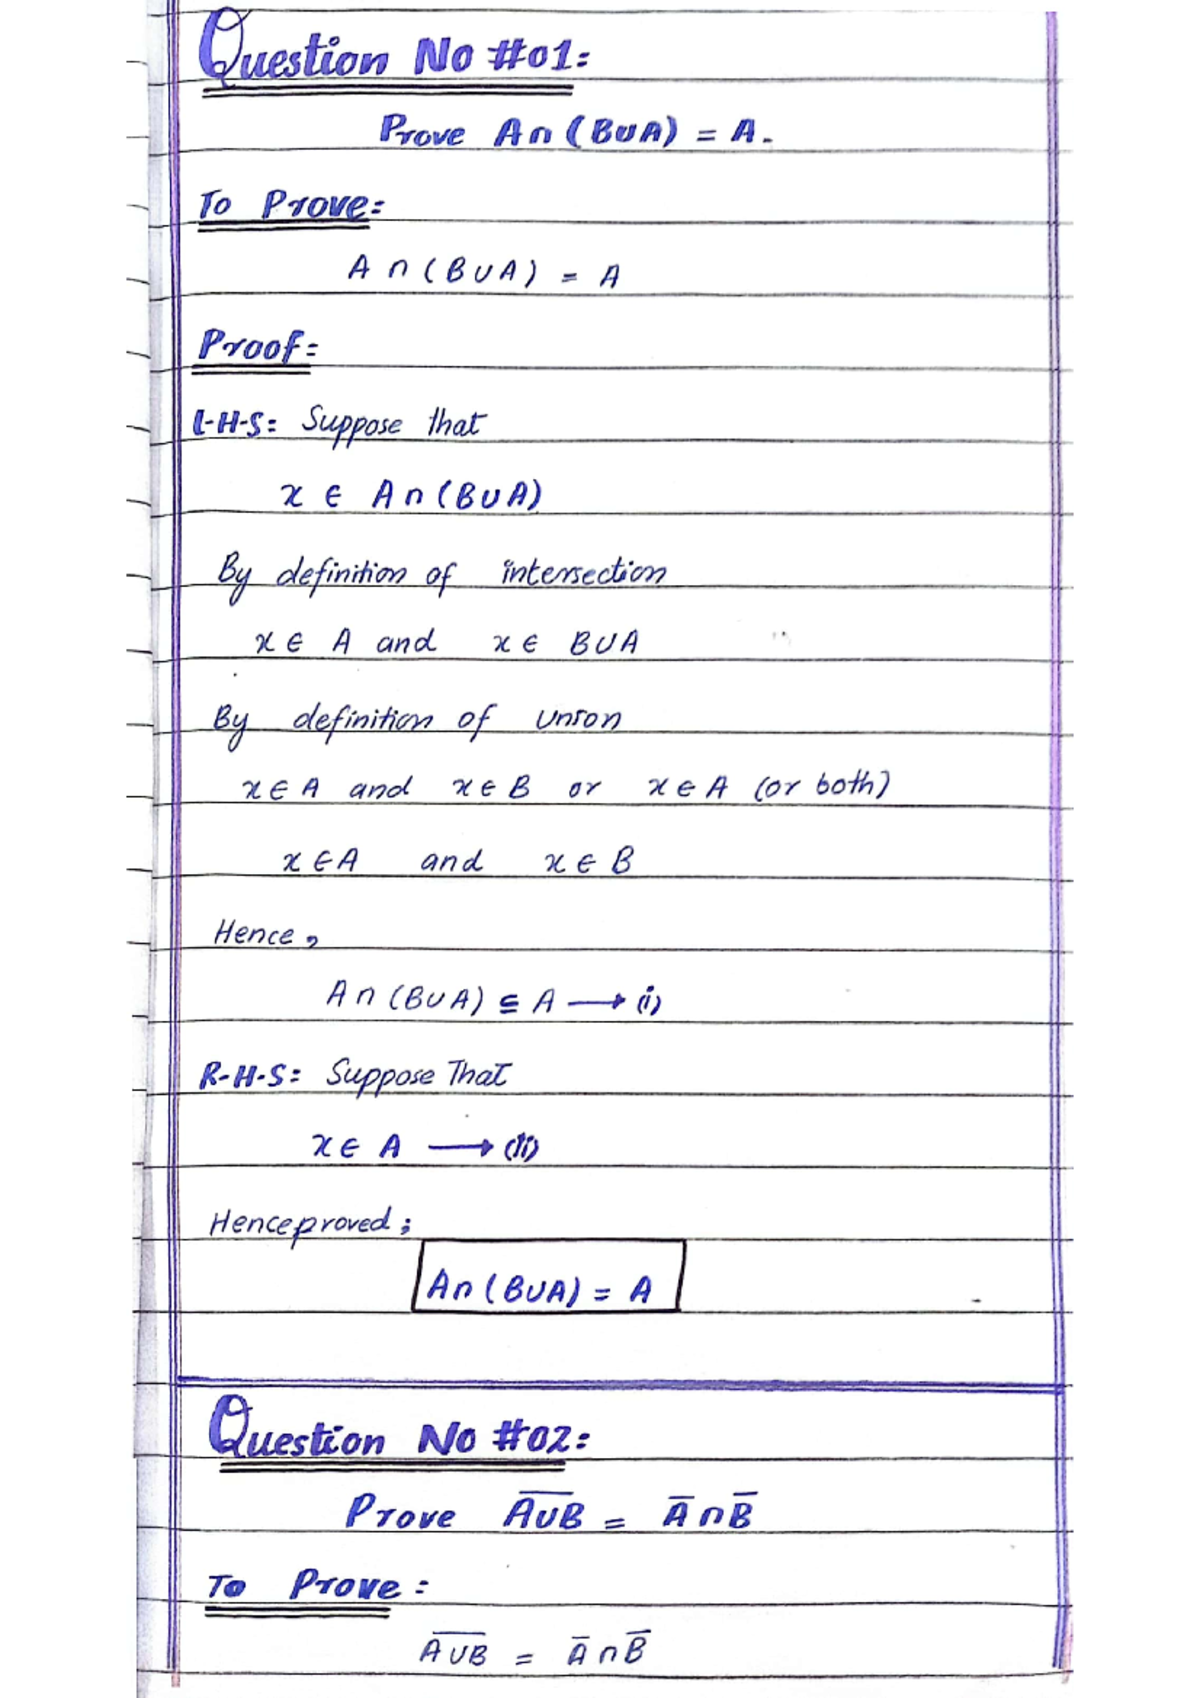 Question No #01:
Prove A∩(B∪A) = A.
To Prove:
A ∩ (B∪A) = A
Proof:
L-H-S: Suppose that
x ∈ A∩(B∪A)
By definition of intersection
x ∈ A and x ∈ B∪A
By definition of union
x ∈ A and x ∈ B or x ∈ A (or both)
x ∈ A and x ∈ B
Hence,
A∩(B∪A) ⊆ A → (i)
R-H-S: Suppose That
x ∈ A → (ii)
Hence proved;
A∩(B∪A) = A
Question No #02:
Prove A̅∪̅B̅ = A̅ ∩ B̅
To Prove:
A̅∪̅B̅ = A̅ ∩ B̅